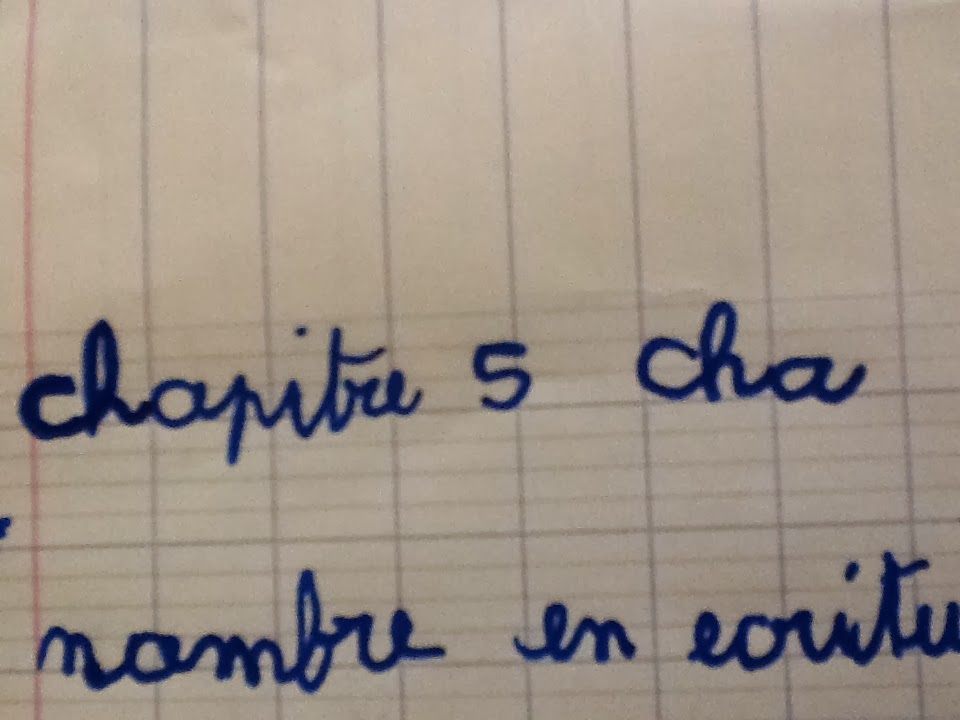 chapitre 5 cha
nombre en ecritu